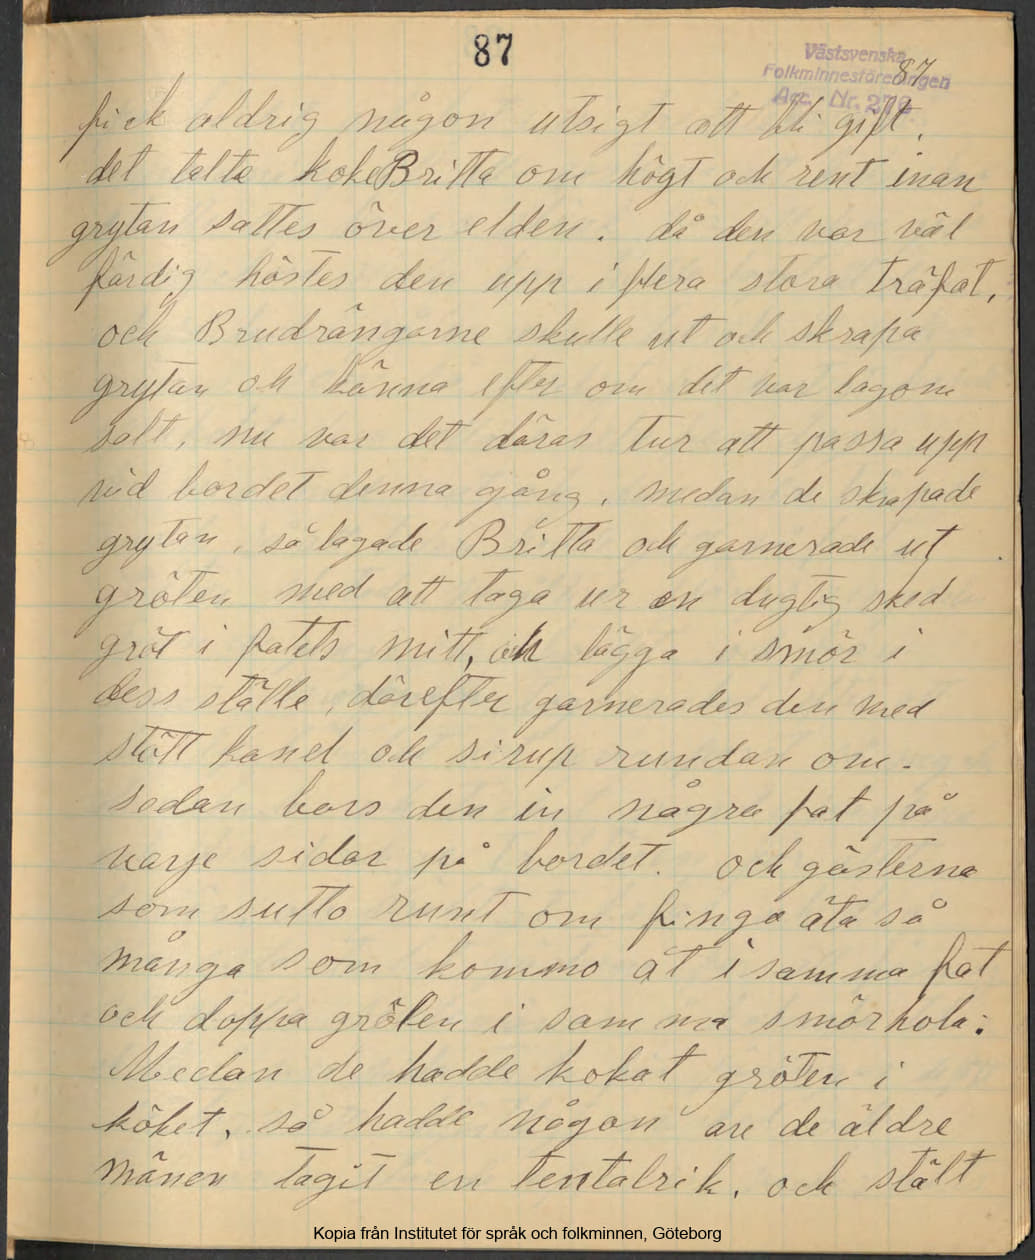 87
Västsvenska
Folkminnesföreningen
87
Acc. Nr. 279.
fick aldrig någon utsigt att bli gift.
det talte kokeBritta om högt och rent inan
grytan sattes över elden. då den var väl
färdig höstes den upp i flera stora träfat,
och Brudrängarne skulle ut och skrapa
grytan och känna efter om det var lagom
salt, nu var det däras tur att passa upp
vid bordet denna gång, medan de skrapade
grytan, så lagade Britta och garnerade ut
gröten med att taga ur en dugtig sked
gröt i fatets mitt, och lägga i smör i
dess ställe, därefter garnerades den med
stött kanel och sirup rundan om.
sedan bars den in några fat på
varje sidar på bordet. och gästerna
som sutto runt om fingo äta så
många som kommo åt i samma fat
och doppa gröten i samma smörhola.
Medan de hadde kokat gröten i
köket, så hadde någon av de äldre
mänen tagit en tentalrik, och stält
Kopia från Institutet för språk och folkminnen, Göteborg